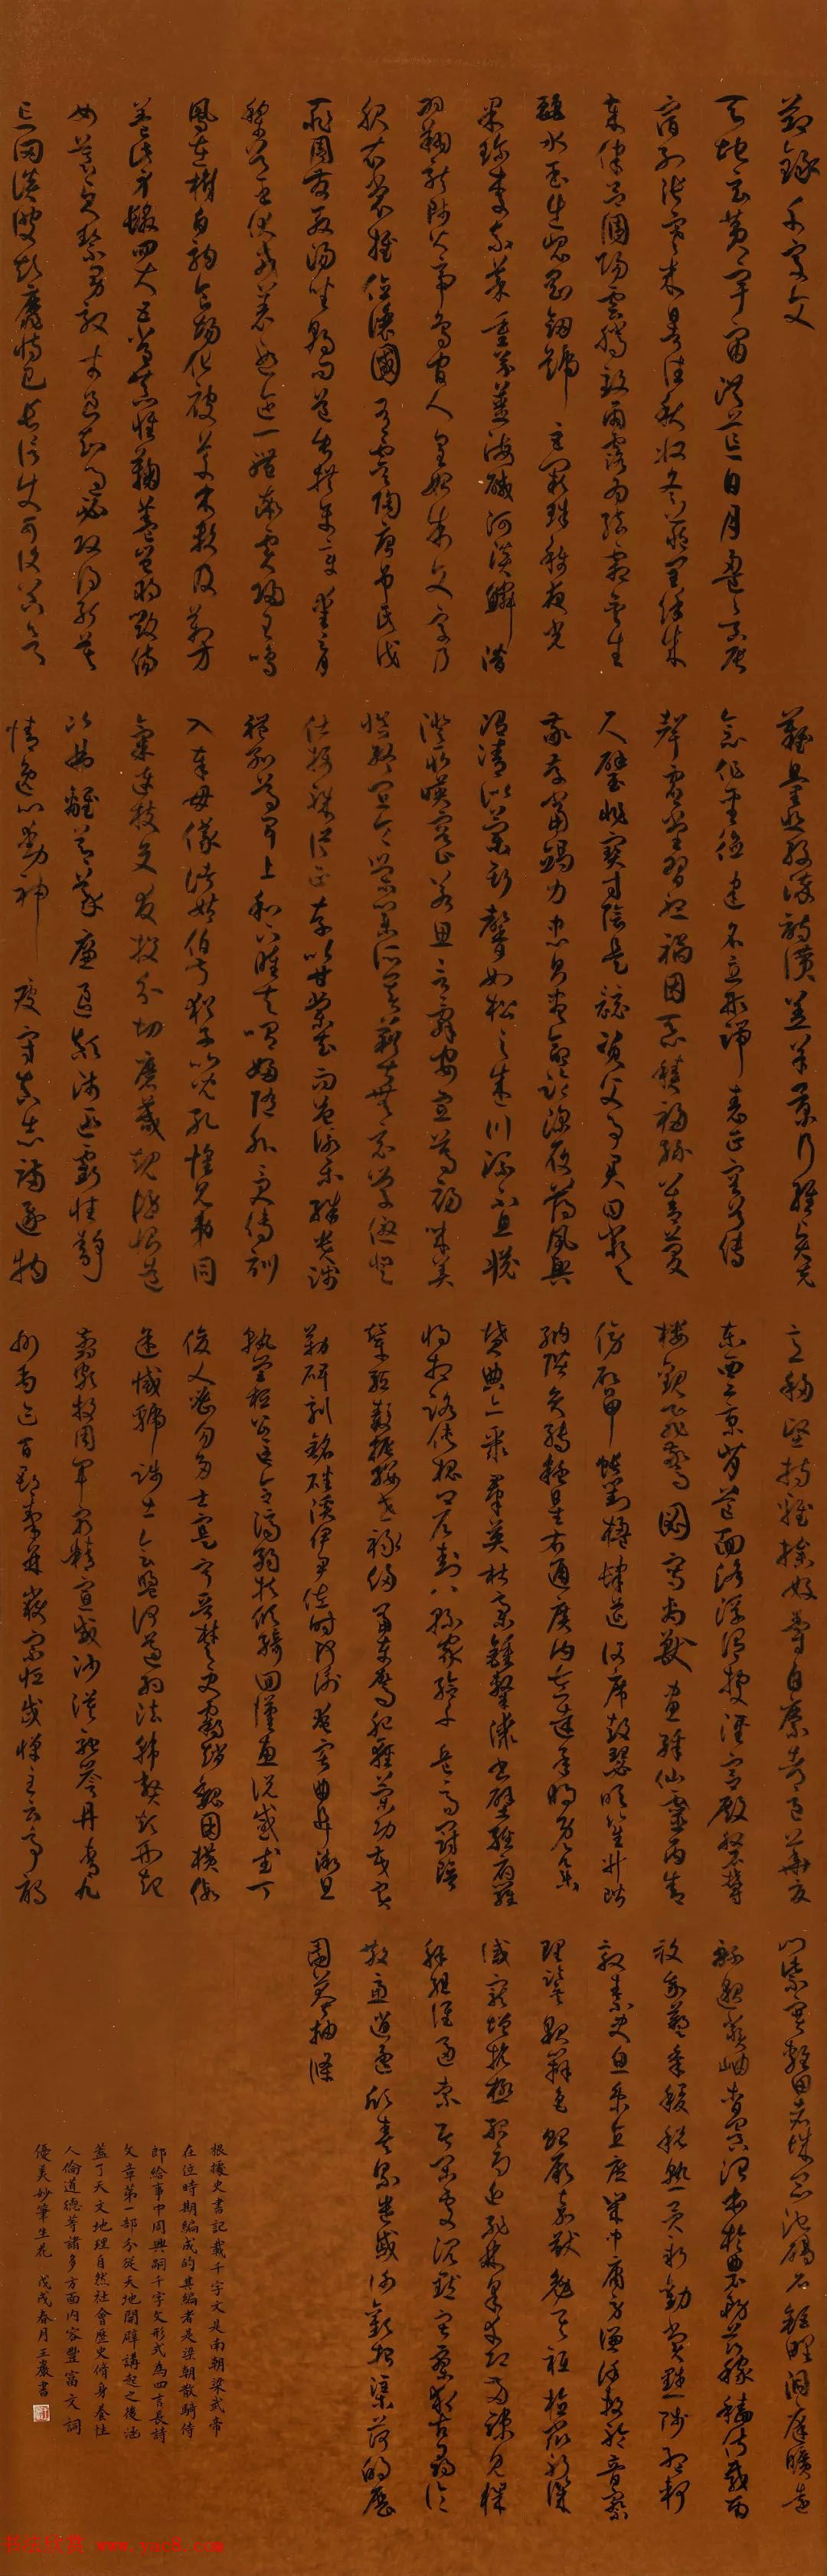 節錄千字文
天地玄黃宇宙洪荒日月盈昃辰
宿列張寒來暑往秋收冬藏閏餘成
歲律呂調陽雲騰致雨露結為霜金生
麗水玉出崑岡劍號巨闕珠稱夜光
果珍李柰菜重芥薑海鹹河淡鱗潛
羽翔龍師火帝鳥官人皇始制文字乃
服衣裳推位讓國有虞陶唐弔民伐
罪周發殷湯坐朝問道垂拱平章愛育
黎首臣伏戎羌遐邇一體率賓歸王鳴
鳳在樹白駒食場化被草木賴及萬方
蓋此身髮四大五常恭惟鞠養豈敢毀傷
女慕貞絜男效才良知過必改得能莫
忘罔談彼短靡恃己長信使可復器欲
難量墨悲絲染詩讚羔羊景行維賢克
念作聖德建名立形端表正空谷傳
聲虛堂習聽禍因惡積福緣善慶
尺璧非寶寸陰是競資父事君曰嚴與
敬孝當竭力忠則盡命臨深履薄夙興
溫凊似蘭斯馨如松之盛川流不息淵
澄取暎容止若思言辭安定篤初誠美
慎終宜令榮業所基籍甚無竟學優登
仕攝職從政存以甘棠去而益詠樂殊貴賤
禮別尊卑上和下睦夫唱婦隨外受傅訓
入奉母儀諸姑伯叔猶子比兒孔懷兄弟同
氣連枝交友投分切磨箴規仁慈隱惻造
次弗離節義廉退顛沛匪虧性靜
情逸心動神疲守真志滿逐物
意移堅持雅操好爵自縻都邑華夏
東西二京背芒面洛浮渭據涇宮殿盤鬱
樓觀飛驚圖寫禽獸畫彩仙靈丙舍
傍啟甲帳對楹肆筵設席鼓瑟吹笙升階
納陛弁轉疑星右通廣內左達承明既集
墳典亦聚群英杜稾鍾隸漆書壁經府羅
將相路俠槐卿戶封八縣家給千兵高冠陪
輦驅轂振纓世祿侈富車駕肥輕策功茂實
勒碑刻銘磻溪伊尹佐時阿衡奄宅曲阜微旦
孰營桓公匡合濟弱扶傾綺回漢惠說感武丁
俊乂密勿多士寔寧晉楚更霸趙魏困橫假
途滅虢踐土會盟何遵約法韓弊煩刑起
翦頗牧用軍最精宣威沙漠馳譽丹青九
州禹跡百郡秦并嶽宗恆岱禪主云亭雁
門紫塞雞田赤城昆池碣石鉅野洞庭曠遠
綿邈巖岫杳冥治本於農務茲稼穡俶載南
畝我藝黍稷稅熟貢新勸賞黜陟孟軻
敦素史魚秉直庶幾中庸勞謙謹敕聆音察
理鑑貌辨色貽厥嘉猷勉其祗植省躬譏
誡寵增抗極殆辱近恥林皋幸即兩疏見機
解組誰逼索居閒處沉默寂寥求古尋論
散慮逍遙欣奏累遣慼謝歡招渠荷的歷
園莽抽條
根據史書記載千字文是南朝梁武帝
在位時期編成的其編者是梁朝散騎侍
郎給事中周興嗣千字文形式為四言長詩
文章第一部分從天地開辟講起之後涵
蓋了天文地理自然社會歷史脩身養性
人倫道德等諸多方面內容豐富文詞
優美妙筆生花 戊戌春月王嚴書
书法欣赏 www.yac8.com